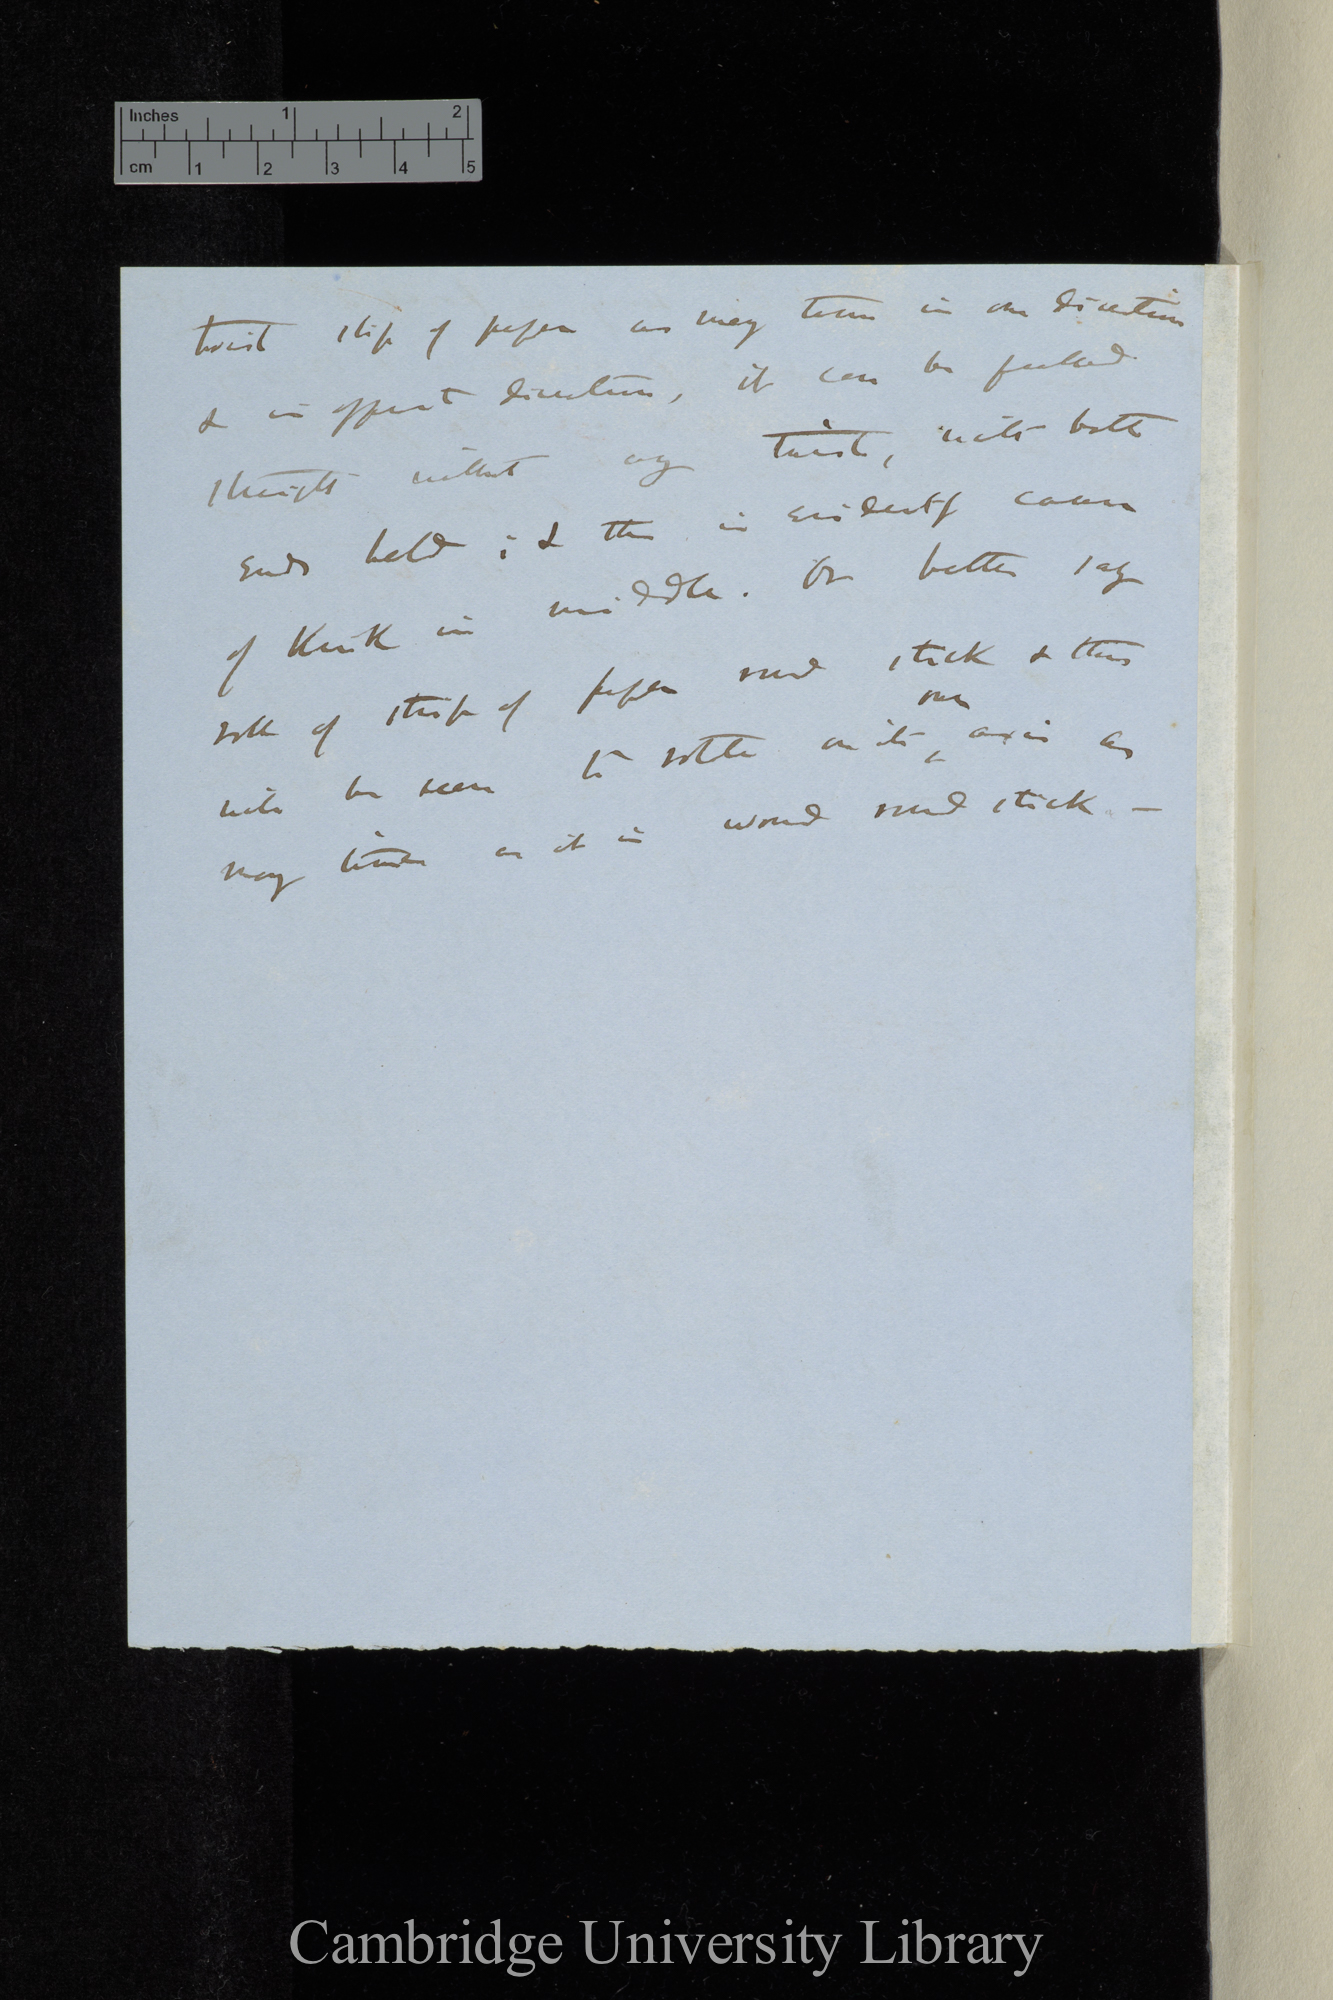 Inches 1 2
cm 1 2 3 4 5
twist slip of paper as many turns in one direction
& in opposit direction, it can be pulled
straight without any twist, with both
ends held; & this is evidently cause
of Kink in middle. Or better say
roll of strip of paper round stick & this
will be seen to rotate on its ^own axis as
many times as it is wound round stick —
Cambridge University Library